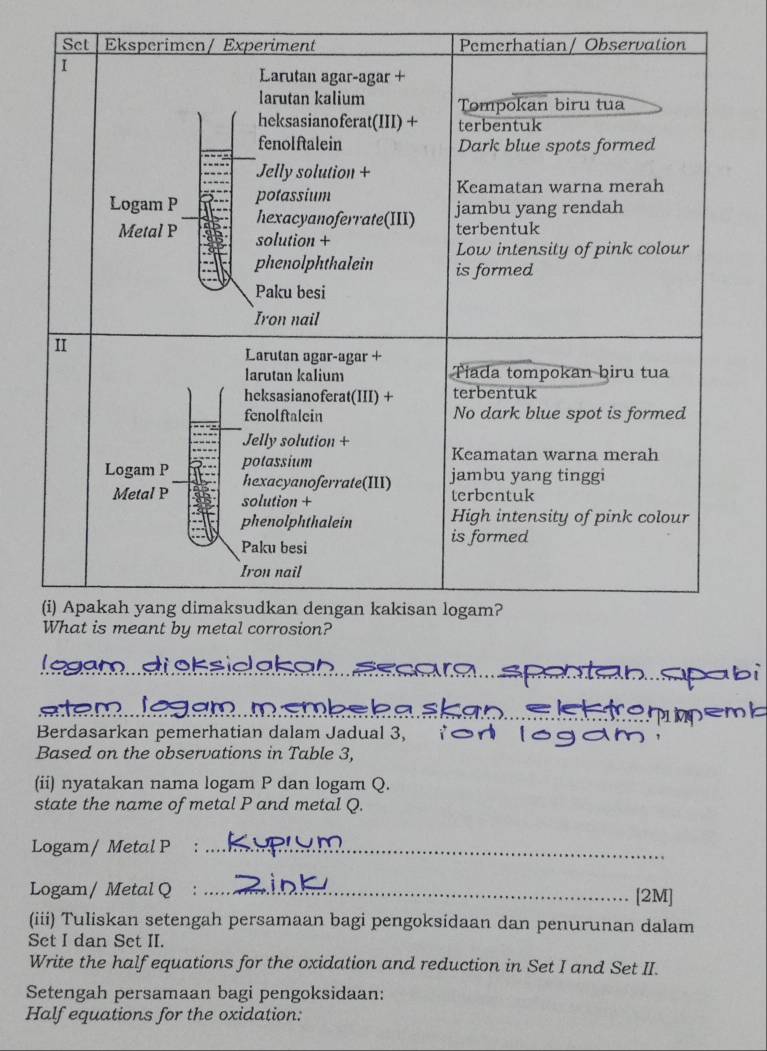 Set Eksperimen/ Experiment Pemerhatian/ Observation
I
Larutan agar-agar +
larutan kalium
heksasianoferat(III) +
fenolftalein
Jelly solution +
potassium
hexacyanoferrate(III)
solution +
phenolphthalein
Logam P
Metal P
Paku besi
Iron nail
Tompokan biru tua
terbentuk
Dark blue spots formed
Keamatan warna merah
jambu yang rendah
terbentuk
Low intensity of pink colour
is formed
II
Larutan agar-agar +
larutan kalium
heksasianoferat(III) +
fenolftalein
Jelly solution +
potassium
hexacyanoferrate(III)
solution +
phenolphthalein
Logam P
Metal P
Paku besi
Iron nail
Tiada tompokan biru tua
terbentuk
No dark blue spot is formed
Keamatan warna merah
jambu yang tinggi
terbentuk
High intensity of pink colour
is formed
(i) Apakah yang dimaksudkan dengan kakisan logam?
What is meant by metal corrosion?
logam dioksidakan secara spontan apabi
atom logam membebaskan elektron
ion logam.
Berdasarkan pemerhatian dalam Jadual 3,
Based on the observations in Table 3,
(ii) nyatakan nama logam P dan logam Q.
state the name of metal P and metal Q.
Logam/ Metal P : Kuprum
Logam/ Metal Q : Zink [2M]
(iii) Tuliskan setengah persamaan bagi pengoksidaan dan penurunan dalam
Set I dan Set II.
Write the half equations for the oxidation and reduction in Set I and Set II.
Setengah persamaan bagi pengoksidaan:
Half equations for the oxidation: